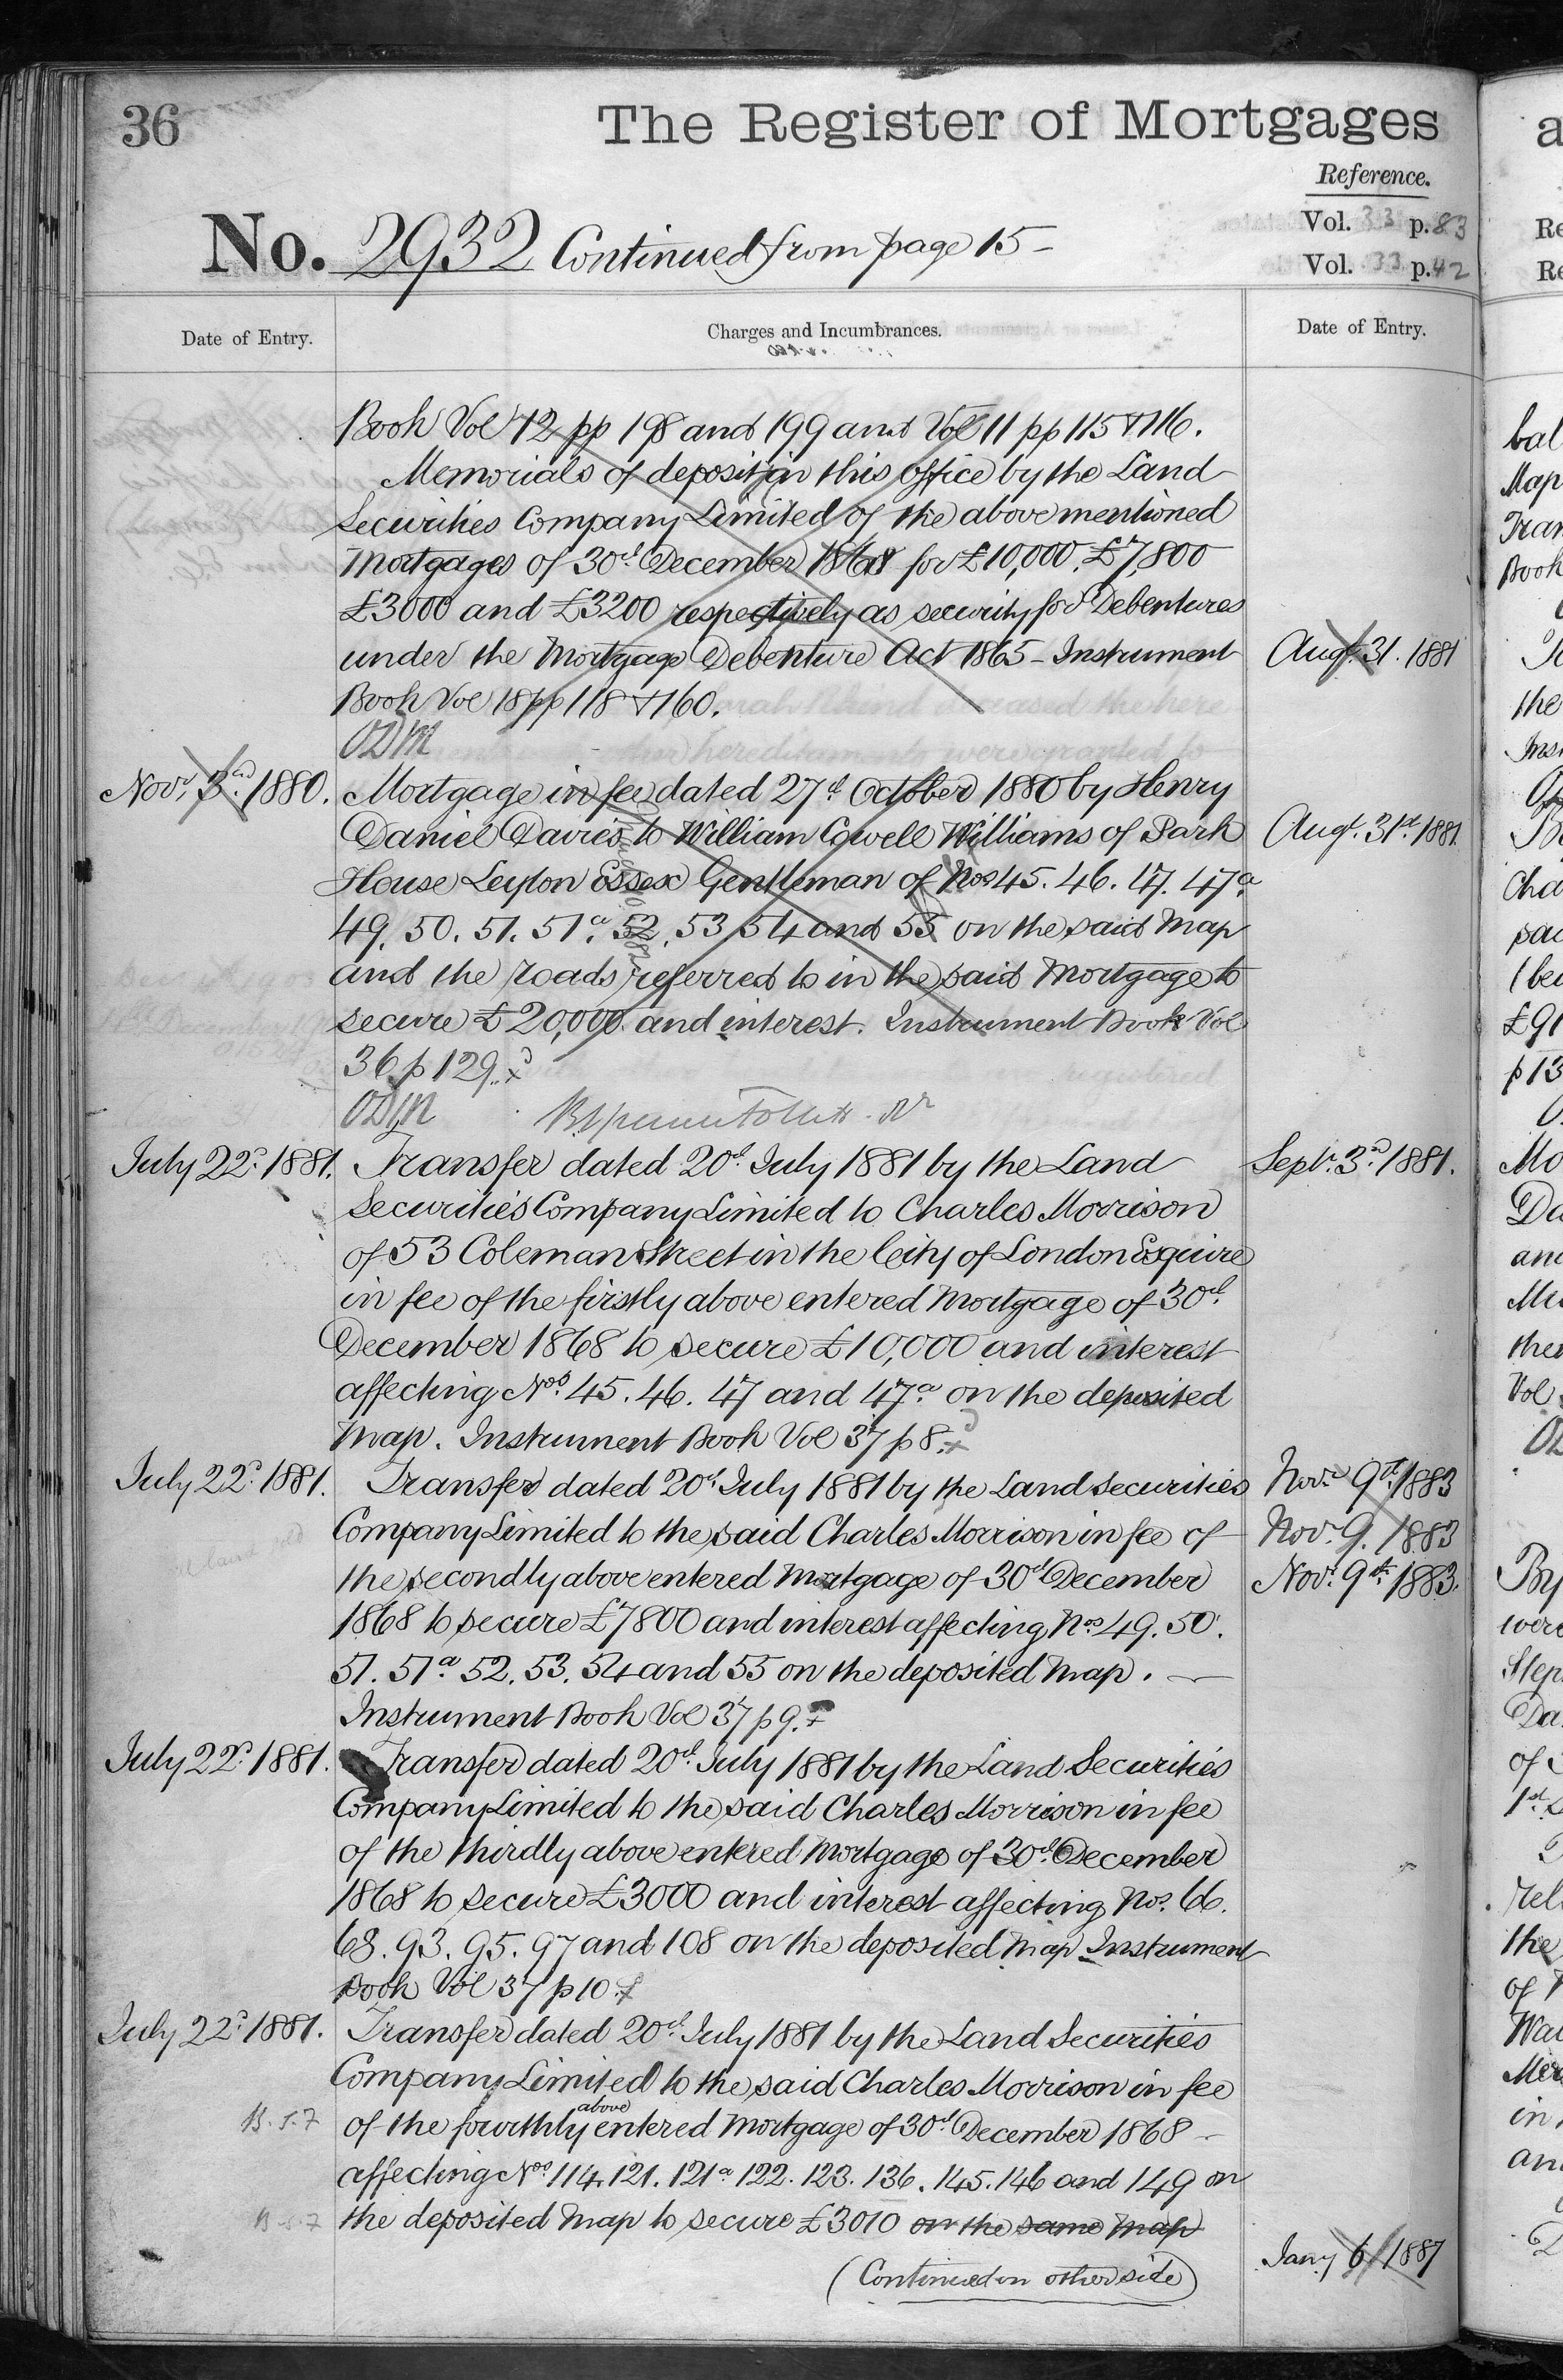 36
The Register of Mortgages
Reference.
Vol. 33 p. 83
Vol. 33 p. 42
No. 2932 Continued from page 15 -
Date of Entry.
Charges and Incumbrances.
Date of Entry.
Book Vol 12 pp 198 and 199 and Vol 11 pp 115 & 116.
Memorials of deposit in this office by the Land
Securities Company Limited of the above mentioned
Mortgages of 30th December 1868 for £10,000, £7,800
£3000 and £3200 respectively as security for Debentures
under the Mortgage Debenture Act 1865 - Instrument
Book Vol 18 pp 118 & 160.
ODM
Novr. 3rd. 1880.
Mortgage in fee dated 27th October 1880 by Henry
Daniel Davies to William Cowell Williams of Park
House Leyton Essex Gentleman of Nos 45. 46. 47. 47a.
49. 50. 51. 51a. 52. 53 54 and 55 on the said Map
and the roads referred to in the said Mortgage to
secure £20,000 and interest. Instrument Book Vol
36 p 129.
ODM
July 22d. 1881.
Transfer dated 20th July 1881 by the Land
Securities Company Limited to Charles Morrison
of 53 Coleman Street in the City of London Esquire
in fee of the firstly above entered Mortgage of 30th
December 1868 to secure £10,000 and interest
affecting Nos. 45. 46. 47 and 47a. on the deposited
Map. Instrument Book Vol 37 p 8.
July 22d. 1881.
Transfer dated 20th July 1881 by the Land Securities
Company Limited to the said Charles Morrison in fee of
the secondly above entered Mortgage of 30th December
1868 to secure £7800 and interest affecting Nos 49. 50.
51. 51a 52. 53. 54 and 55 on the deposited Map. —
Instrument Book Vol 37 p 9.
July 22d. 1881.
Transfer dated 20th July 1881 by the Land Securities
Company Limited to the said Charles Morrison in fee
of the thirdly above entered Mortgage of 30th December
1868 to secure £3000 and interest affecting Nos. 66.
68. 93. 95. 97 and 108 on the deposited Map Instrument
Book Vol 37 p 10.
July 22d. 1881.
Transfer dated 20th July 1881 by the Land Securities
Company Limited to the said Charles Morrison in fee
B.S.7
of the fourthly above entered Mortgage of 30th December 1868 -
affecting Nos. 114. 121. 121a 122. 123. 136. 145. 146 and 149 on
B.S.7
the deposited Map to secure £3010 on the same Map
(Continued on other side)
Augt. 31. 1881
Augt. 31st. 1881.
Septr. 3rd. 1881.
Novr. 9th. 1883
Novr. 9. 1883
Novr. 9th. 1883.
Jany 6 1887
a
Re
Re
bal
Map
Tran
Book
the
Inst
Cha
sai
£91
p 13
Mo
Da
and
ther
Vol.
By
were
Step
Da
of
1st.
rel
the
of
Wa
Mer
in
an